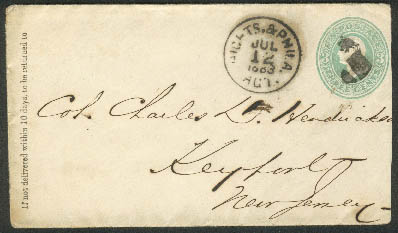 If not delivered within 10 days, to be returned to
HIGHTS. & PHILA.
JUL
12
1883
AGT.
Col. Charles D. Hendrickson
Keyport
New Jersey